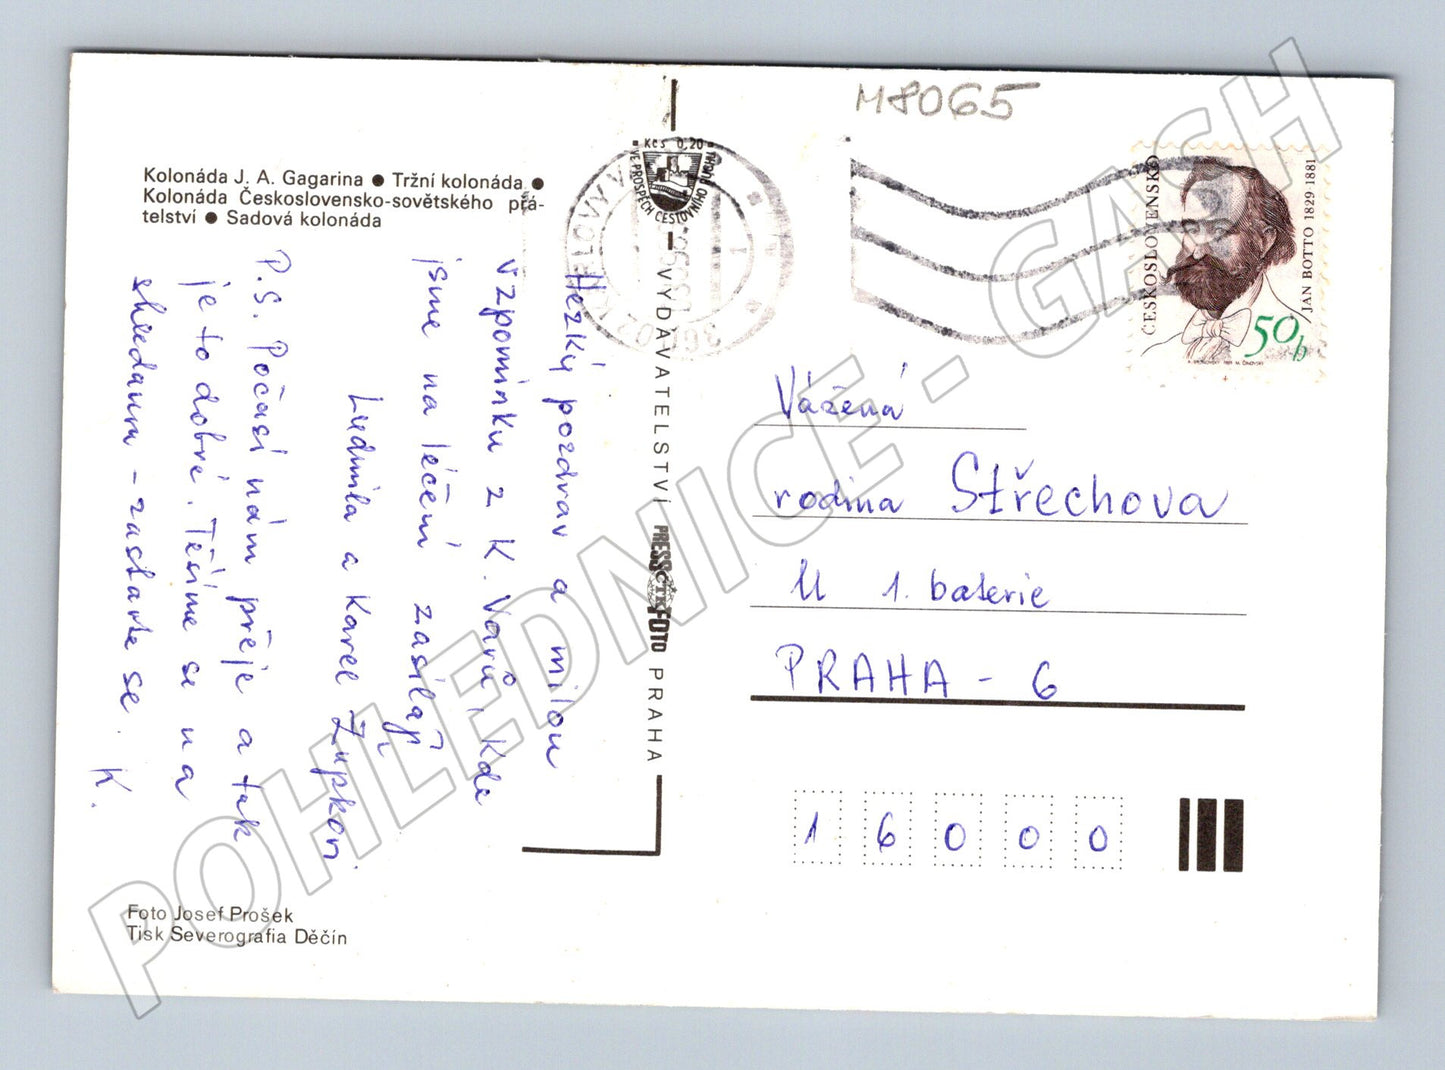 Kolonáda J. A. Gagarina ● Tržní kolonáda ●
Kolonáda Československo-sovětského přá-
telství ● Sadová kolonáda
Hezký pozdrav a milou
vzpomínku z K. Varů, kde
jsme na léčení zasílají
Ludmila a Karel Zupkovi.
P.S. Počasí nám přeje a tak
je to dobré. Těšíme se na
shledanou - zastavte se.
K.
Foto Josef Prošek
Tisk Severografia Děčín
Kčs 0,20
VE PROSPĚCH CESTOVNÍHO RUCHU
VYDAVATELSTVÍ PRESSFOTO PRAHA
ČTK
M8065
ČESKOSLOVENSKO
JAN BOTTO 1829 1881
50 h
Vážená
rodina Střechova
U 1. baterie
PRAHA - 6
16000
POHLEDNICE - GASH